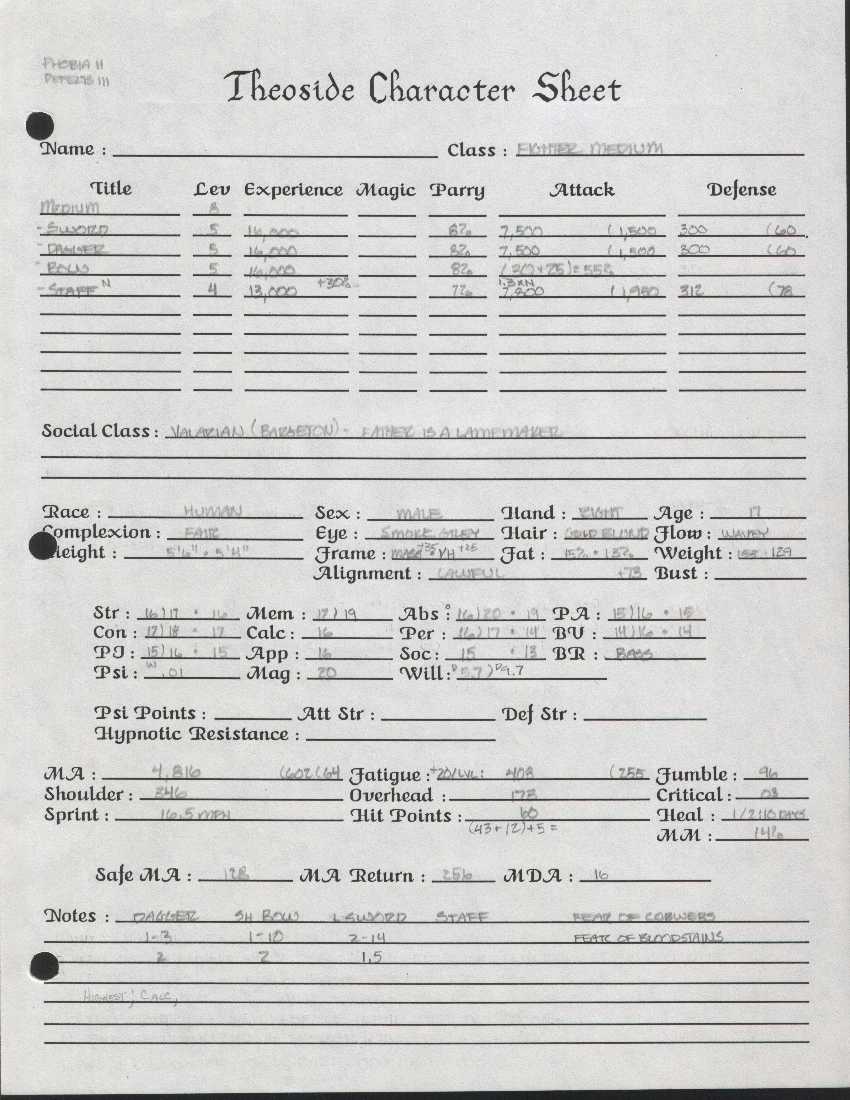 PHOBIA II
DEFECTS III
Theoside Character Sheet
Name : Class : FIGHTER MEDIUM
Title Lev Experience Magic Parry Attack Defense
MEDIUM 8
- SWORD 5 16,000 8% 7,500 (1,500 300 (60
- DAGGER 5 16,000 8% 7,500 (1,500 300 (60
- BOW 5 16,000 8% (20+25)=55%
- STAFF N 4 13,000 +30% 7% 1.3XN 7,200 (1,950 312 (78
Social Class : VALARIAN (BARGETON) - FATHER IS A LAMEMAKER
Race : HUMAN Sex : MALE Hand : RIGHT Age : 17
Complexion : FAIR Eye : SMOKE GREY Hair : GOLD BLOND Flow : WAVEY
Height : 5'6" • 5'4" Frame : VH +25 Fat : 15% • 13% Weight : 139
Alignment : LAWFUL +73 Bust :
Str : 16)17 • 16 Mem : 17)19 Abs : 16)20 • 19 PA : 15)16 • 15
Con : 17)18 • 17 Calc : 16 Per : 16)17 • 14 BV : 14)16 • 14
PI : 15)16 • 15 App : 16 Soc : 15 • 13 BR : BASS
Psi : .01 Mag : 20 Will : 5.7) 9.7
Psi Points : Att Str : Def Str :
Hypnotic Resistance :
MA : 4,816 (602(64 Fatigue : +20/LVL: 408 (255 Fumble : 96
Shoulder : 346 Overhead : 173 Critical : 03
Sprint : 16.5 MPH Hit Points : 60 Heal : 1/2:10 DAYS
(43+12)+5= MM : 14%
Safe MA : 128 MA Return : 256 MDA : 16
Notes : DAGGER SH BOW L-SWORD STAFF FEAR OF COBWEBS
1-3 1-10 2-14 FEAR OF BLOODSTAINS
2 2 1.5
HIGHEST; CALC,